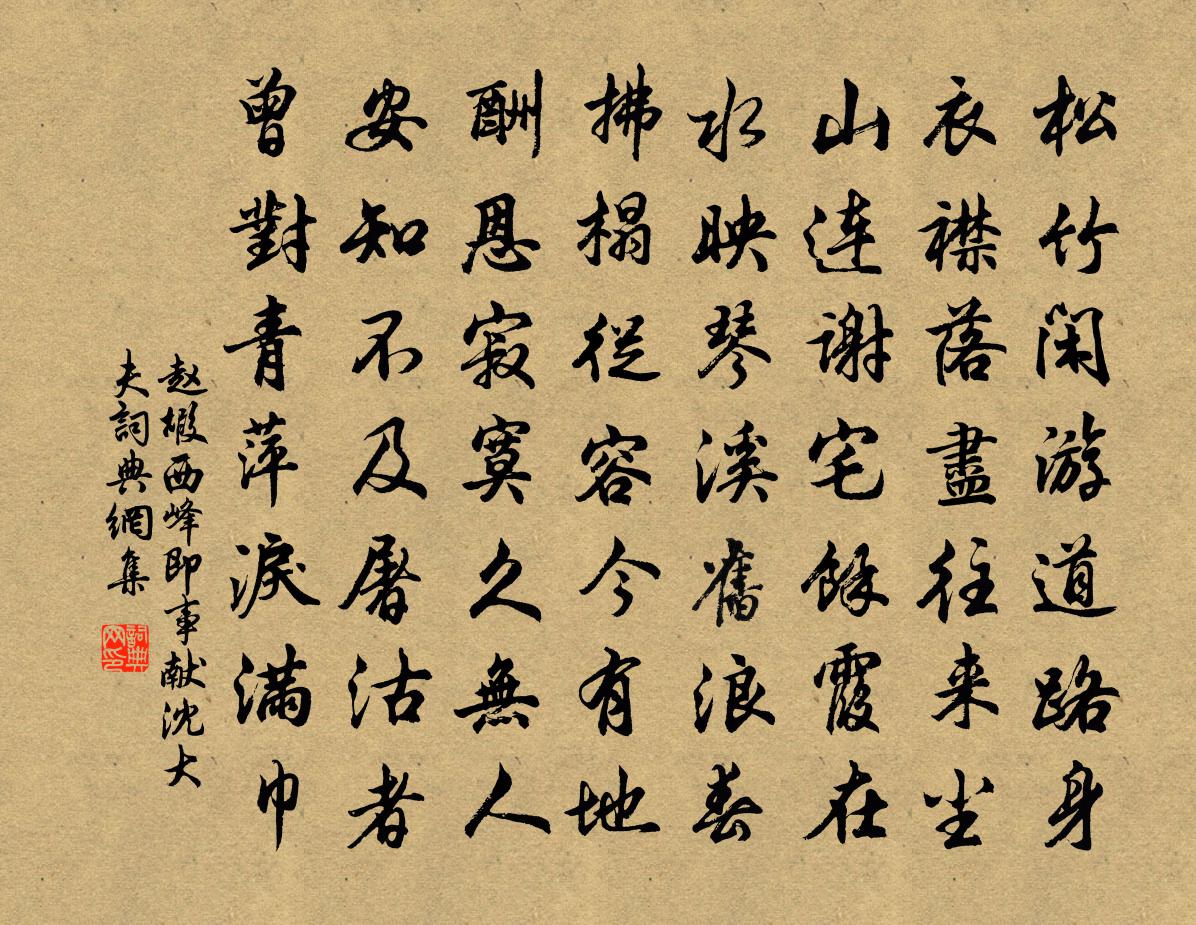 松竹闲游道路身
衣襟落盡往来尘
山连谢宅餘霞在
水映琴溪舊浪春
拂榻從容今有地
酬恩寂寞久無人
安知不及屠沽者
曾對青萍淚满巾
赵嘏西峰即事献沈大
夫詞典網集
詞典网印